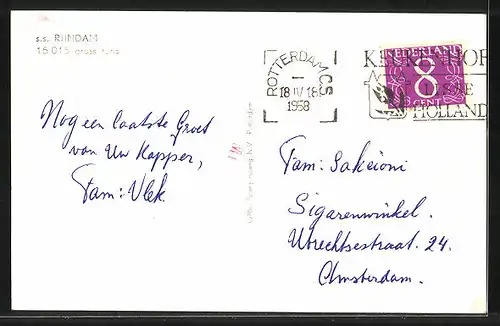 s.s. RIJNDAM
15.015 gross tons
Nog een laatste Groet
van Uw Kapper,
Fam: Vlek.
ROTTERDAM C.S
18 IV 18
1958
KEUKENHOF
LISSE
HOLLAND
NEDERLAND
8
CENT
Fam: Sakcioni
Sigarenwinkel.
Utrechtsestraat. 24.
Amsterdam.